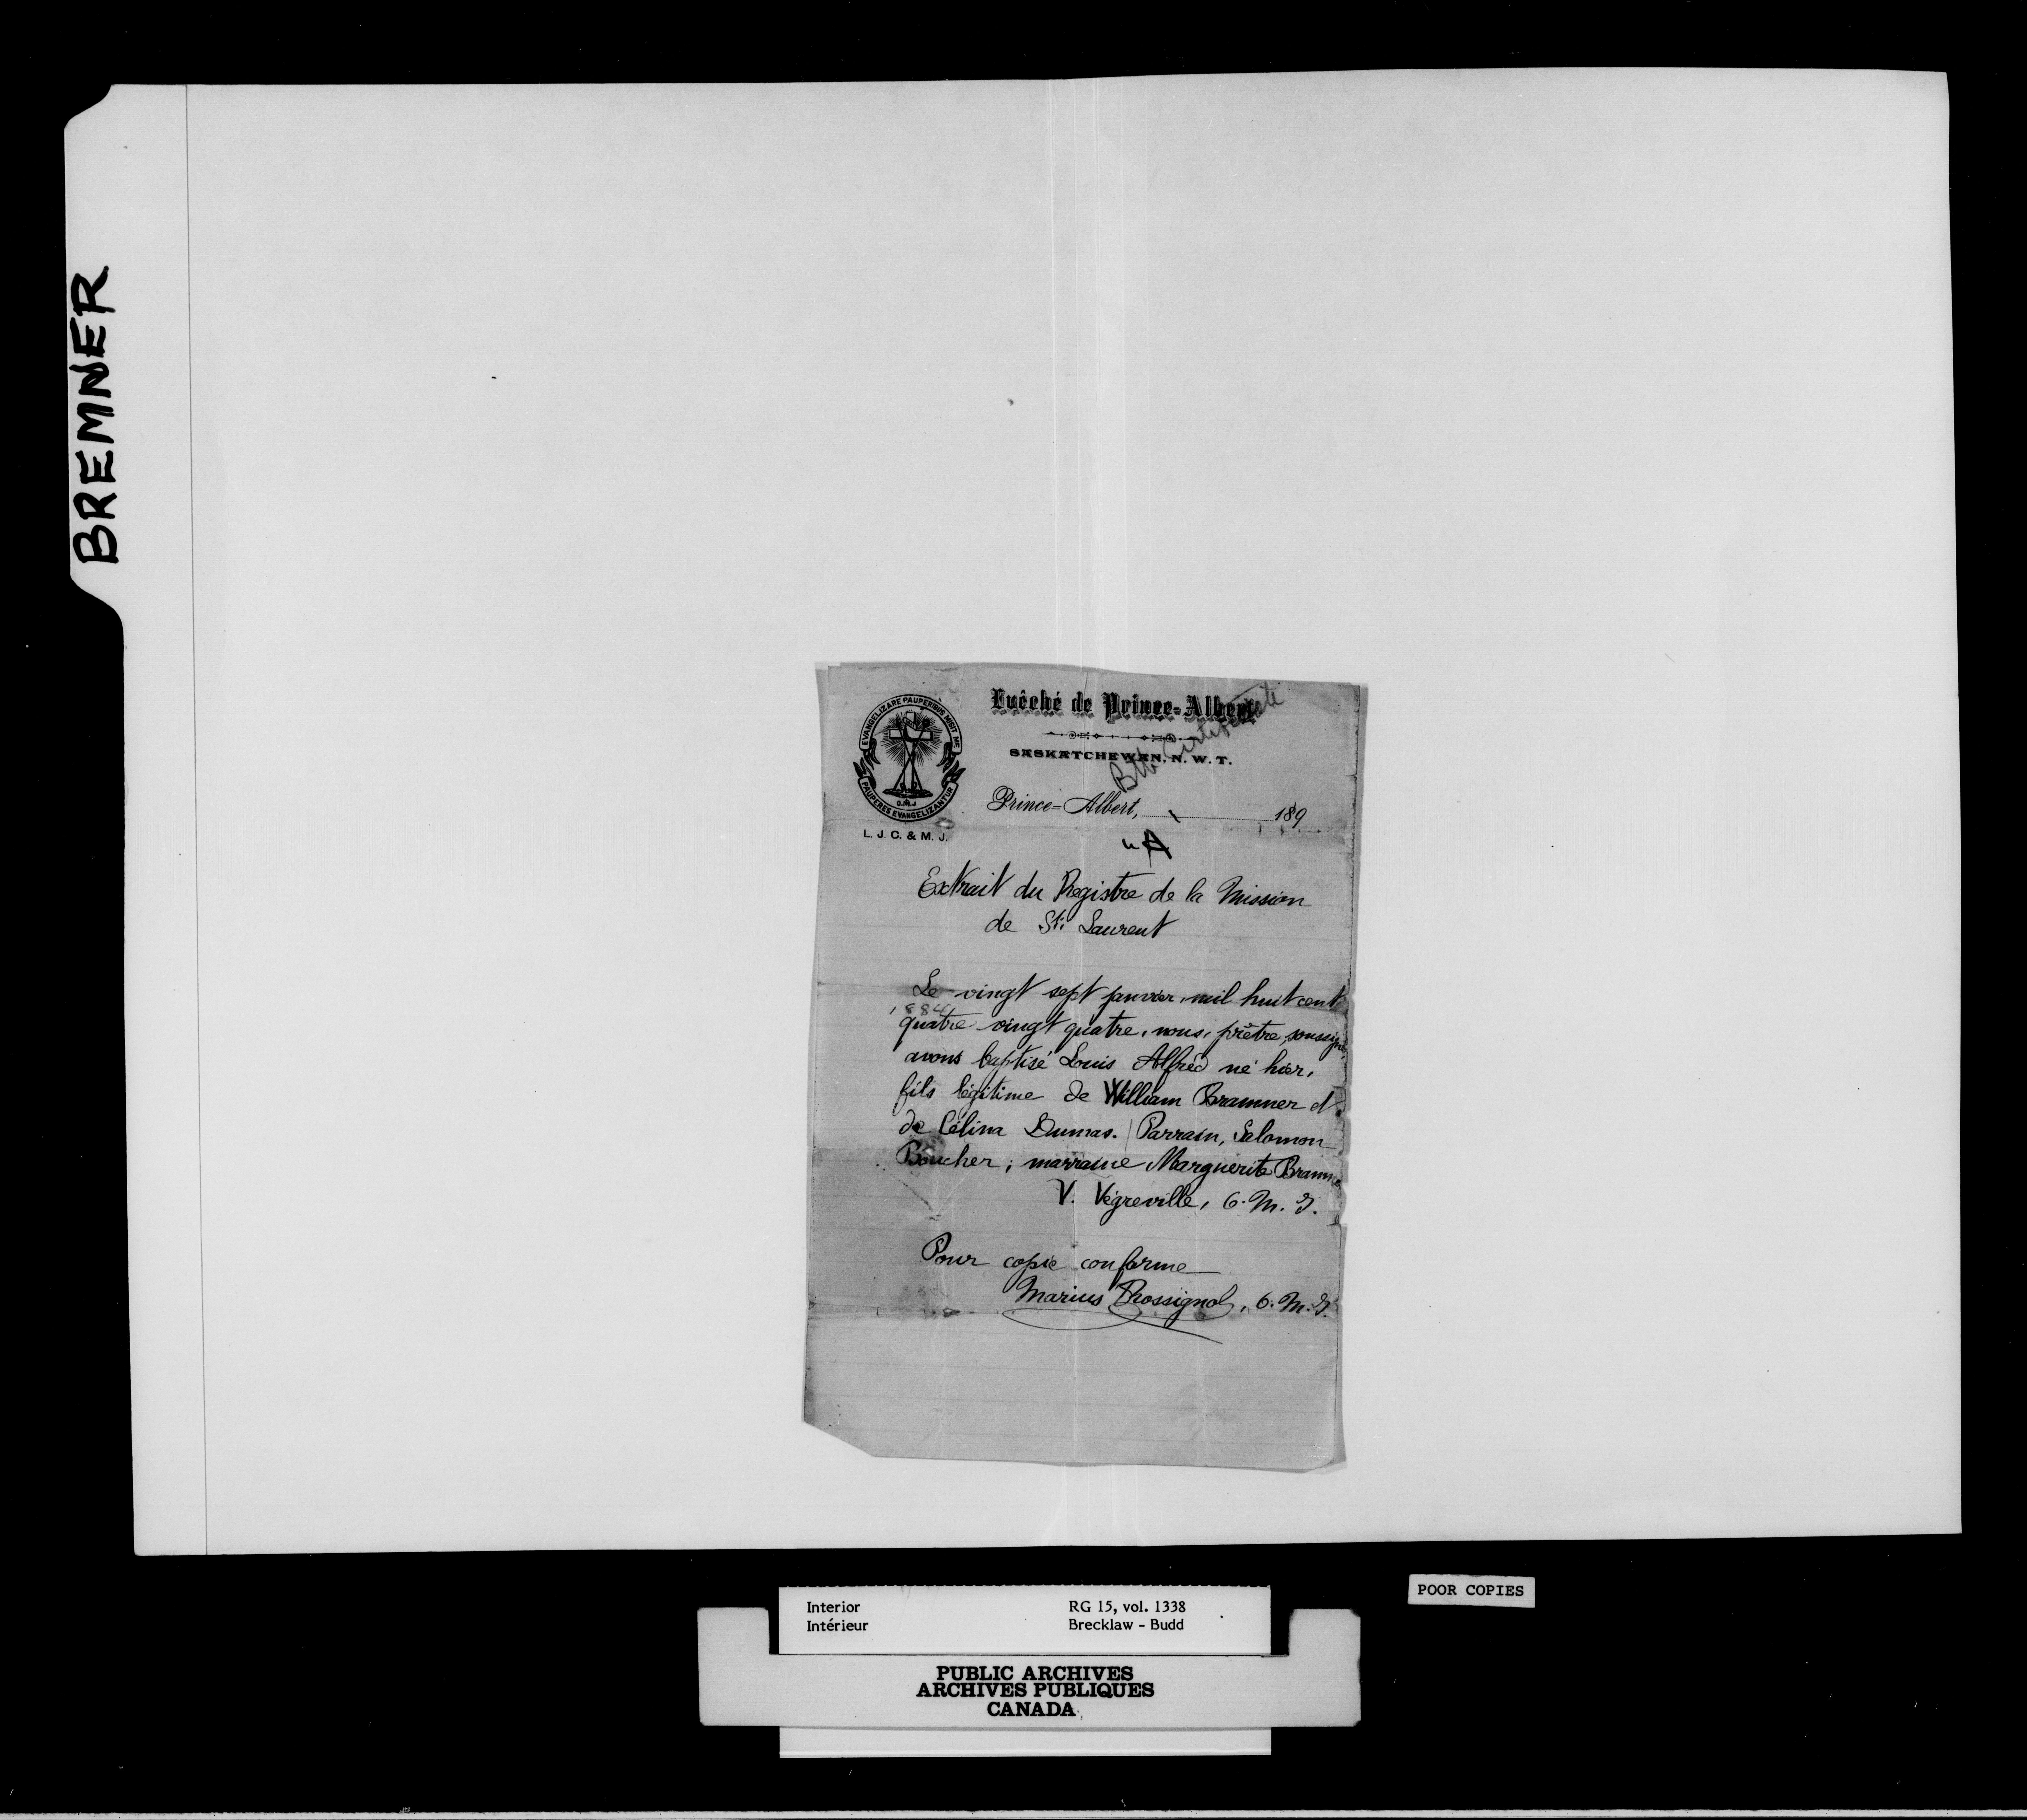 BREMNER
Evêché de Prince-Albert
SASKATCHEWAN, N. W. T.
EVANGELIZARE PAUPERIBUS MISIT ME
PAUPERES EVANGELIZANTUR
O.M.J
L. J. C. & M. J.
Bth Certificate
Prince-Albert, 189
"A
Extrait du Registre de la Mission
de St. Laurent
Le vingt sept janvier, mil huit cent
1884
quatre vingt quatre, nous, prêtre, soussigné,
avons baptisé Louis Alfred né hier,
fils légitime de William Bramner et
de Célina Dumas. Parrain, Salomon
Boucher; marraine Marguerite Bramner
V. Végreville, O. M. I.
Pour copie conforme
Marius Rossignol, O. M. I.
POOR COPIES
Interior RG 15, vol. 1338
Intérieur Brecklaw - Budd
PUBLIC ARCHIVES
ARCHIVES PUBLIQUES
CANADA